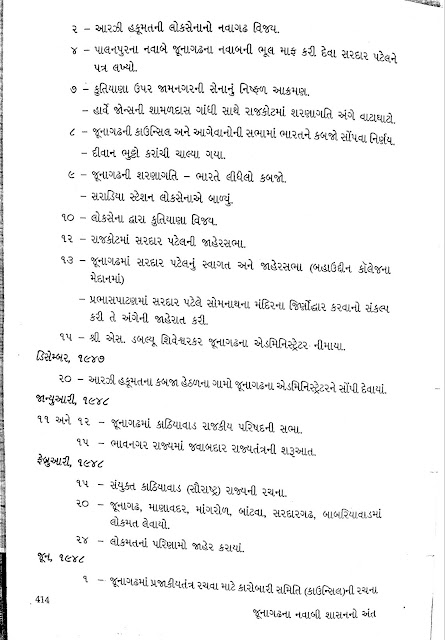 ૨ – આરઝી હકૂમતની લોકસેનાનો નવાગઢ વિજય.
૪ – પાલનપુરના નવાબે જૂનાગઢના નવાબની ભૂલ માફ કરી દેવા સરદાર પટેલને
પત્ર લખ્યો.
૭ – કુતિયાણા ઉપર જામનગરની સેનાનું નિષ્ફળ આક્રમણ.
– હાર્વે જોન્સની શામળદાસ ગાંધી સાથે રાજકોટમાં શરણાગતિ અંગે વાટાઘાટો.
૮ – જૂનાગઢની કાઉન્સિલ અને આગેવાનોની સભામાં ભારતને કબજો સોંપવા નિર્ણય.
– દીવાન ભુટ્ટો કરાંચી ચાલ્યા ગયા.
૯ – જૂનાગઢની શરણાગતિ – ભારતે લીધેલો કબજો.
– સરાડિયા સ્ટેશન લોકસેનાએ બાળ્યું.
૧૦ – લોકસેના દ્વારા કુતિયાણા વિજય.
૧૨ – રાજકોટમાં સરદાર પટેલની જાહેરસભા.
૧૩ – જૂનાગઢમાં સરદાર પટેલનું સ્વાગત અને જાહેરસભા (બહાઉદ્દીન કૉલેજના
મેદાનમાં)
– પ્રભાસપાટણમાં સરદાર પટેલે સોમનાથના મંદિરના જિર્ણોદ્વાર કરવાનો સંકલ્પ
કરી તે અંગેની જાહેરાત કરી.
૧૫ – શ્રી એસ. ડબલ્યુ શિવેશ્વરકર જૂનાગઢના એડમિનિસ્ટ્રેટર નીમાયા.
ડિસેમ્બર, ૧૯૪૭
૨૦ – આરઝી હકૂમતના કબજા હેઠળના ગામો જૂનાગઢના એડમિનિસ્ટ્રેટરને સોંપી દેવાયાં.
જાન્યુઆરી, ૧૯૪૮
૧૧ અને ૧૨ – જૂનાગઢમાં કાઠિયાવાડ રાજકીય પરિષદની સભા.
૧૫ – ભાવનગર રાજ્યમાં જવાબદાર રાજ્યતંત્રની શરૂઆત.
ફેબ્રુઆરી, ૧૯૪૮
૧૫ – સંયુક્ત કાઠિયાવાડ (સૌરાષ્ટ્ર) રાજ્યની રચના.
૨૦ – જૂનાગઢ, માણાવદર, માંગરોળ, બાંટવા, સરદારગઢ, બાબરિયાવાડમાં
લોકમત લેવાયો.
૨૪ – લોકમતનાં પરિણામો જાહેર કરાયાં.
જૂન, ૧૯૪૮
૧ – જૂનાગઢમાં પ્રજાકીયતંત્ર રચવા માટે કારોબારી સમિતિ (કાઉન્સિલ)ની રચના
414
જૂનાગઢના નવાબી શાસનનો અંત